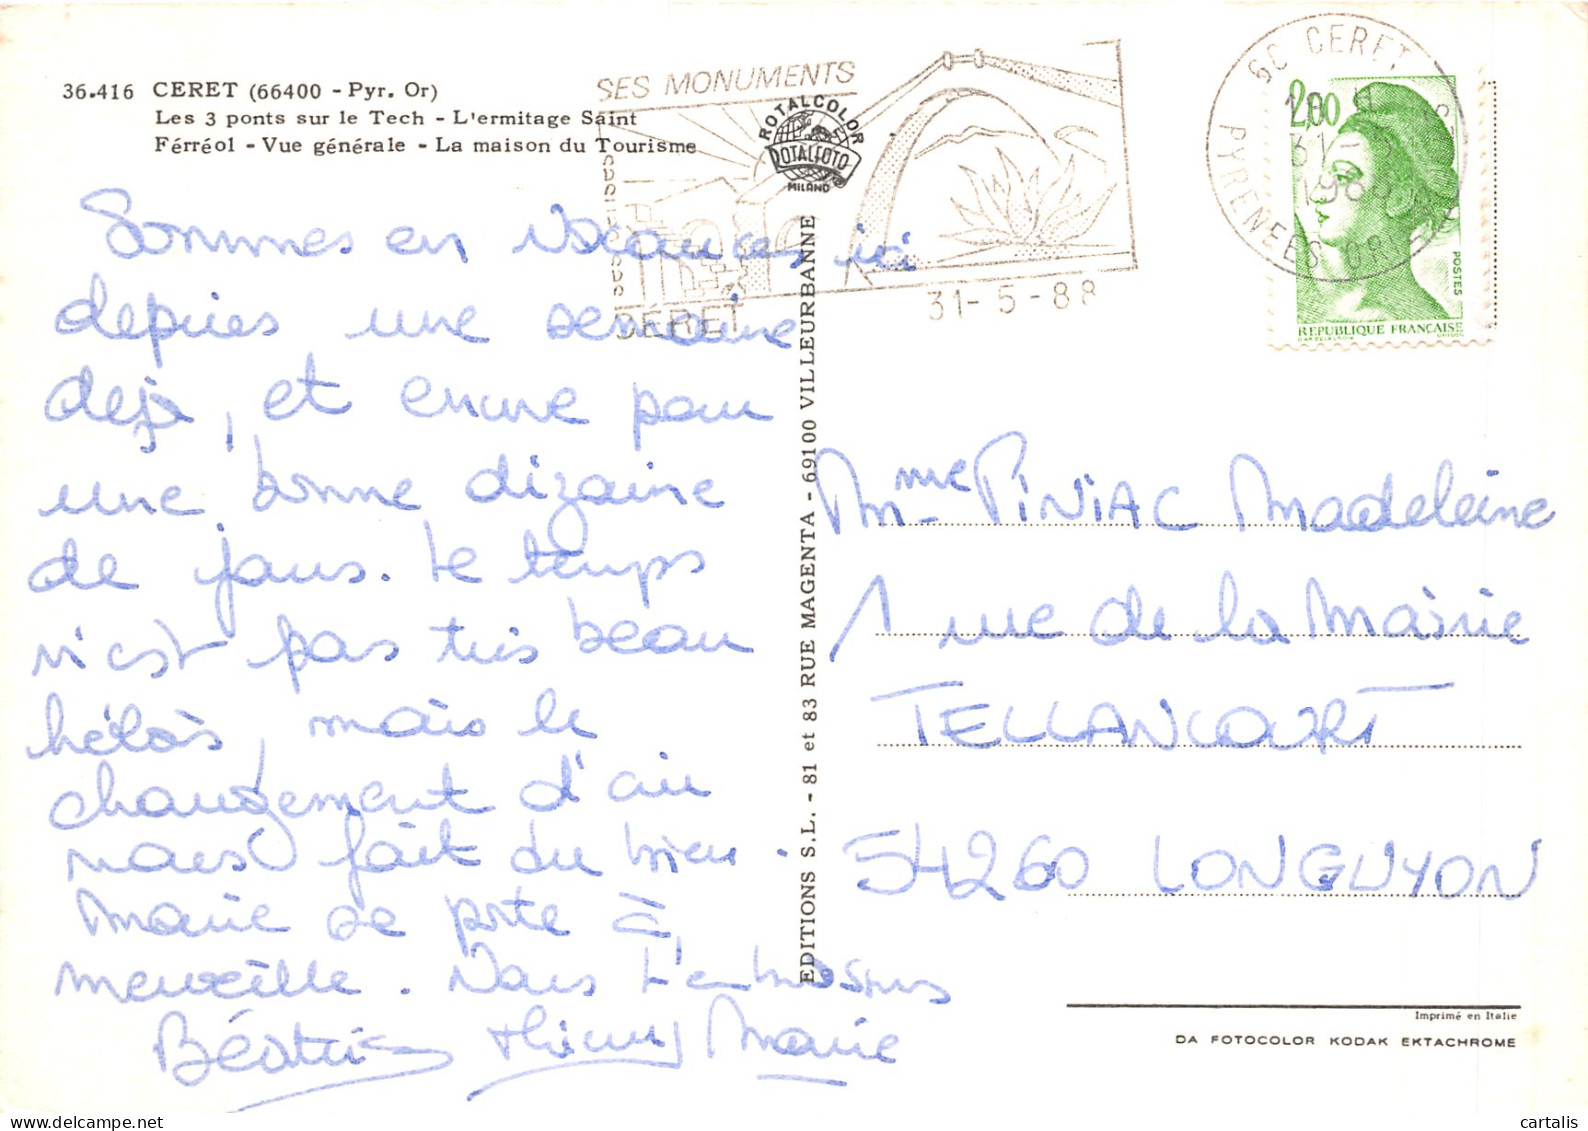 36.416 CERET (66400 - Pyr. Or)
Les 3 ponts sur le Tech - L'ermitage Saint
Férréol - Vue générale - La maison du Tourisme
SES MONUMENTS
CERET
31-5-88
ROTALCOLOR
ROTALFOTO
MILANO
6C CERET
31-5
1988
PYRENEES ORI
2,00
POSTES
REPUBLIQUE FRANÇAISE
Sommes en vacances ici
depuies une semaine
deja, et encore pour
une bonne dizaine
de jours. Le temps
n'est pas très beau
hélas, mais le
changement d'air
nous fait du bien.
Marie se porte à
merveille. Nous t'embrassons
Béatrice Thierry Marie
EDITIONS S.L. - 81 et 83 RUE MAGENTA - 69100 VILLEURBANNE
Mme PINIAC Madeleine
1 rue de la Mairie
TELLANCOURT
54260 LONGUYON
Imprimé en Italie
DA FOTOCOLOR KODAK EKTACHROME
cartalis